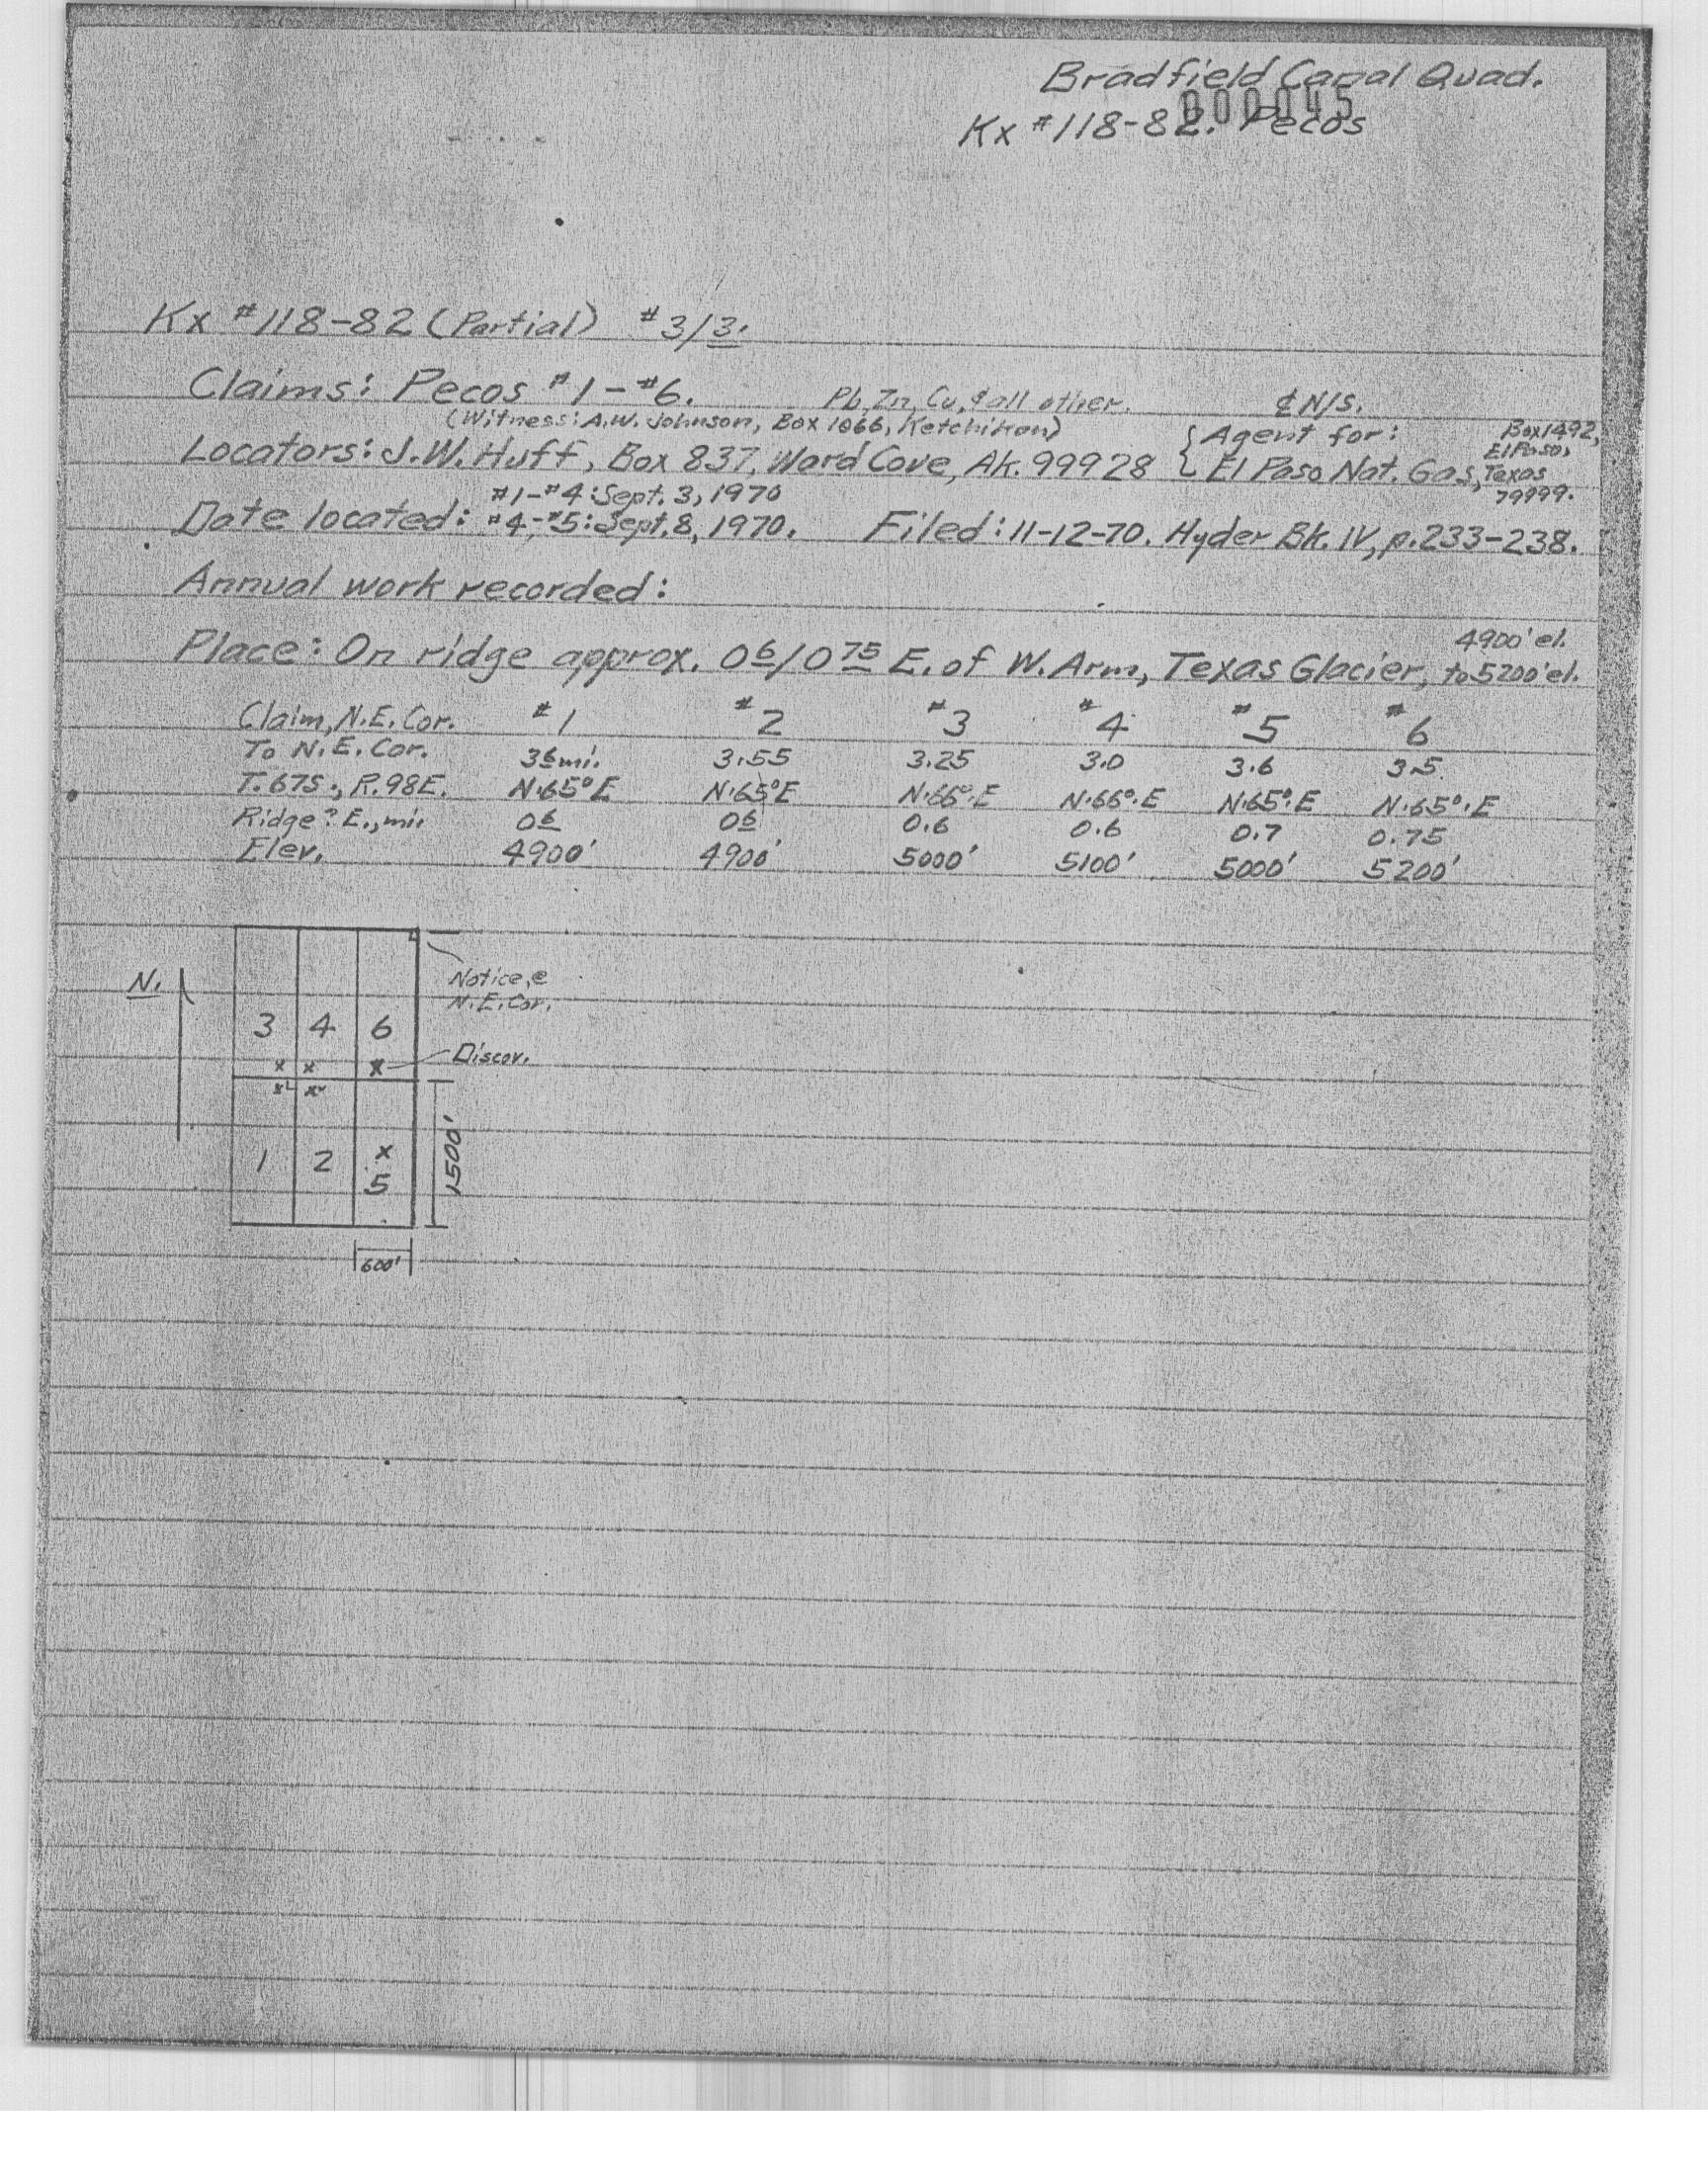 Bradfield Canal Quad.
000045
Kx #118-82. Pecos
Kx #118-82 (Partial) #3/3.
Claims: Pecos #1-#6. Pb, Zn, Cu, & all other. ₵ N/S.
(Witness: A.W. Johnson, Box 1066, Ketchikan)
Locators: J.W. Huff, Box 837, Ward Cove, Ak. 99928 { Agent for: El Paso Nat. Gas, Box 1492, El Paso, Texas 79999.
#1-#4: Sept. 3, 1970
Date located: #4-#5: Sept. 8, 1970. Filed: 11-12-70. Hyder Bk. IV, p. 233-238.
Annual work recorded:
4900' el.
Place: On ridge approx. 06/075 E. of W. Arm, Texas Glacier, to 5200' el.
Claim, N.E. Cor. #1 #2 #3 #4 #5 #6
To N.E. Cor. 36 mi. 3.55 3.25 3.0 3.6 3.5
T. 67S., R. 98E. N.65°E N.65°E N.66°.E N.66°.E N.65°.E N.65°.E
Ridge? E., mi. 06 06 0.6 0.6 0.7 0.75
Elev. 4900' 4900' 5000' 5100' 5000' 5200'
N.
Notice, e
N.E. Cor.
3 4 6
x x x
Discov.
1 2 x
5
1500'
600'